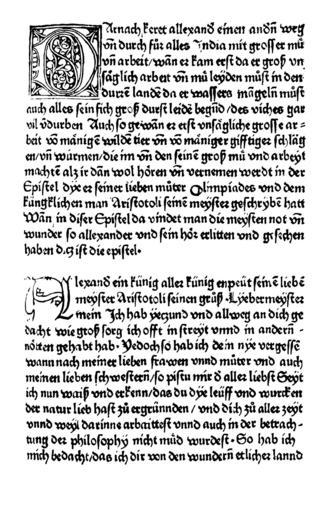 Darnach keret allexand einen andn̄ weg
vn̄ durch für alles India mit grosser mů
vn̄ arbeit/ wan̄ er kam erst da er groß vn
säglich arbeit vn̄ mů leyden můst in den
durrē landē da er wassers māgeln můst
auch alles sein fich groß durst leidē begūd/des viches gar
vil v̉durben Auch so gewan̄ er erst vnsägliche grosse ar-
beit vō mānigē wildē tier vn̄ vō māniger gifftiger schlāg
en/vn̄ würmen/die im vn̄ den seinē groß mů vnd arbeyt
machtē alz ir dān wol hören vn̄ vernemen werdt in der
Epistel dye er seiner lieben můter Olimpiades vnd dem
kūngklichen man Aristotoli seinē meyster geschrybē hatt
Wān in diser Epistel da vindet man die meysten not vn̄
wunder so allexander vnd sein hör erlitten vnd gesechen
haben d.z ist die epistel·
Alexand ein künig aller künig enpeüt seinē liebē
meyster Aristotoli seinen grůß·Lyeber meyster
mein Ich hab yeczund vnd allweg an dich ge
dacht wie groß sorg ich offt in streyt vnnd in andern-
nötten gehabt hab·Yedoch so hab ich dein nye vergessē
wann nach meiner lieben frawen vnnd můter vnd auch
meinen lieben schwestern/so pistu mir d aller liebst Seyt
ich nun waiß vnd erkenn/das du dye leüff vnd wurcken
der natur lieb hast zů ergründen/ vnd dich zů aller zeyt
vnnd weyl darinne arbaittest vnnd auch in der betrach-
tung der philosophy nicht můd wurdest·So hab ich
mich bedacht/das ich dir von den wundern̄ etlicher lannd